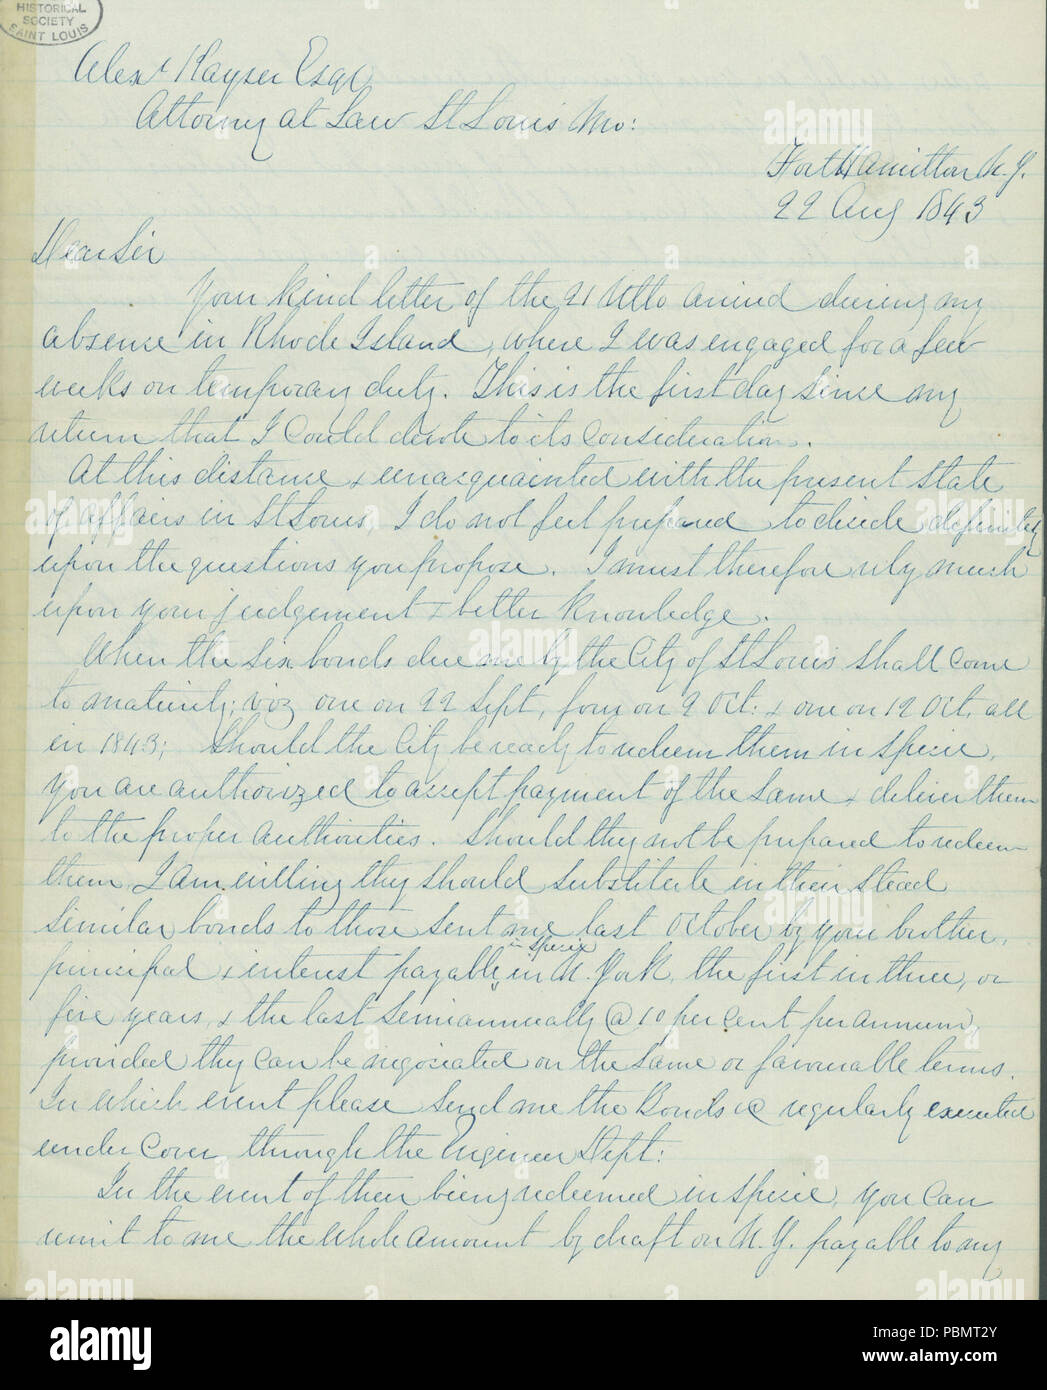 HISTORICAL
SOCIETY
SAINT LOUIS
Alexr Kayser Esqr
Attorney at Law St Louis Mo:
Fort Hamilton N.Y.
22 Aug 1843
Dear Sir
Your kind letter of the 21 Ulto arrived during my
absence in Rhode Island, where I was engaged for a few
weeks on temporary duty. This is the first day since my
return that I could devote to its consideration.
At this distance & unacquainted with the present state
of affairs in St Louis, I do not feel prepared to decide definitely
upon the questions you propose. I must therefore rely much
upon your judgement & better knowledge.
When the six bonds due me by the City of St Louis shall come
to maturity; viz one on 22 Sept, four on 9 Oct: & one on 12 Oct, all
in 1843; Should the City be ready to redeem them in specie,
you are authorized to accept payment of the same & deliver them
to the proper authorities. Should they not be prepared to redeem
them, I am willing they should substitute in their stead
similar bonds to those sent me last October by your brother,
principal & interest payable in specie in N. York, the first in three, or
five years, & the last semiannually @ 10 per cent per annum,
provided they can be negociated on the same or favourable terms.
In which event please send me the Bonds &c regularly executed
under cover through the Engineer Dept:
In the event of their being redeemed in specie, you can
remit to me the whole amount by draft on N.Y. payable to my
alamy
Image ID: PBMT2Y
www.alamy.com